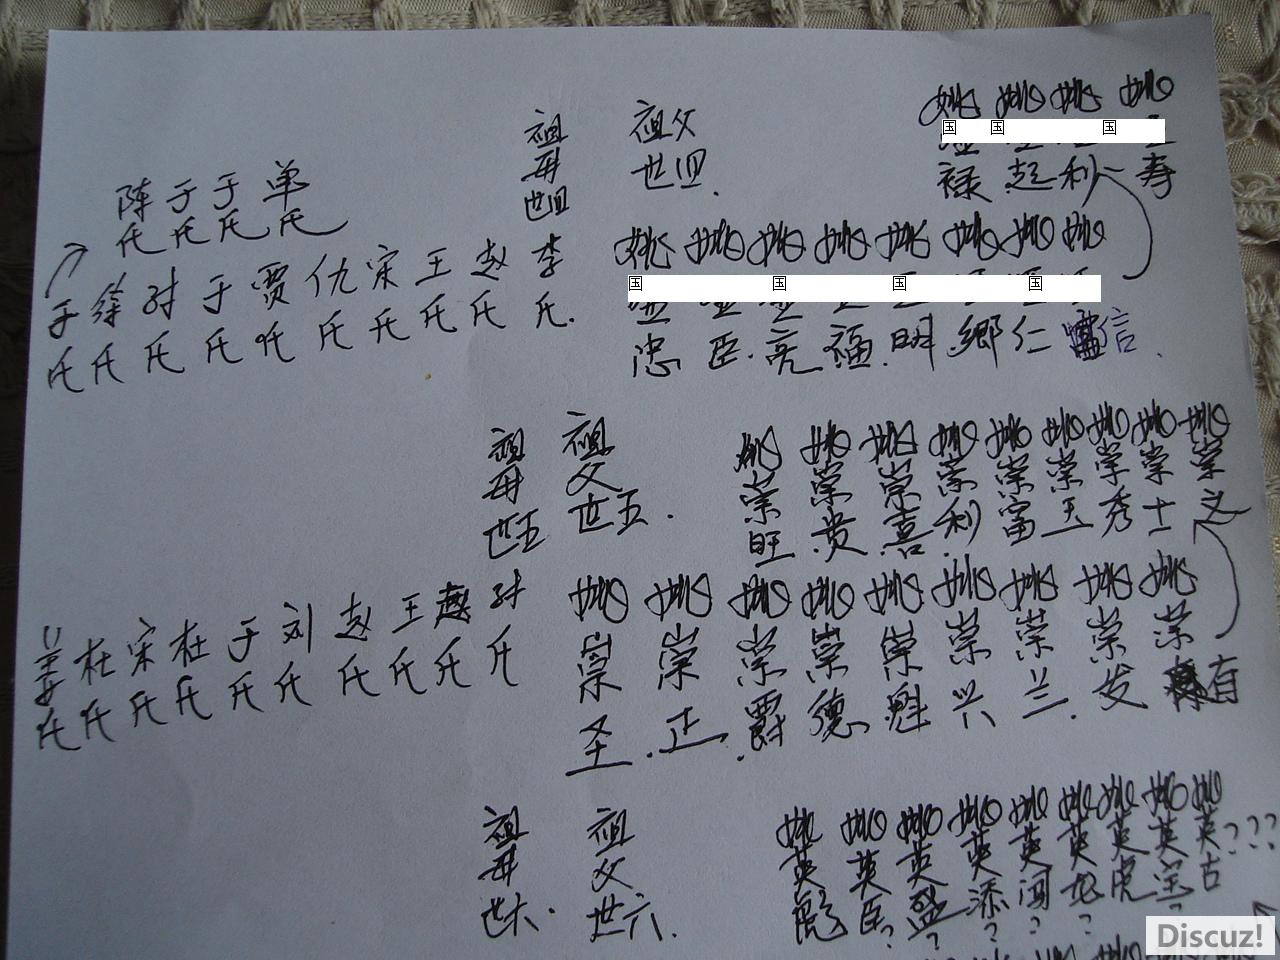 祖父世四.
姚 姚 姚 姚
国 国 国
禄 起 利 寿
姚 姚 姚 姚 姚 姚 姚 姚
国 国 国 国
忠 臣 亮 福 明 鄉 仁 信
祖母世四
陈氏 于氏 于氏 单氏
于氏 徐氏 于氏 贾氏 仇氏 宋氏 王氏 赵氏 李氏.
祖父世五.
姚崇旺 姚崇贵 姚崇喜 姚崇利 姚崇富 姚崇玉 姚崇秀 姚崇士 姚崇文
姚崇圣 姚崇正 姚崇爵 姚崇德 姚崇魁 姚崇兴 姚崇兰 姚崇发 姚崇有
祖母世五
姜氏 杜氏 宋氏 杜氏 于氏 刘氏 赵氏 王氏 赵氏
祖父世六.
姚英彪 姚英臣? 姚英盛? 姚英添? 姚英闯? 姚英龙? 姚英虎 姚英宝? 姚英古 ???
祖母世六.
Discuz!